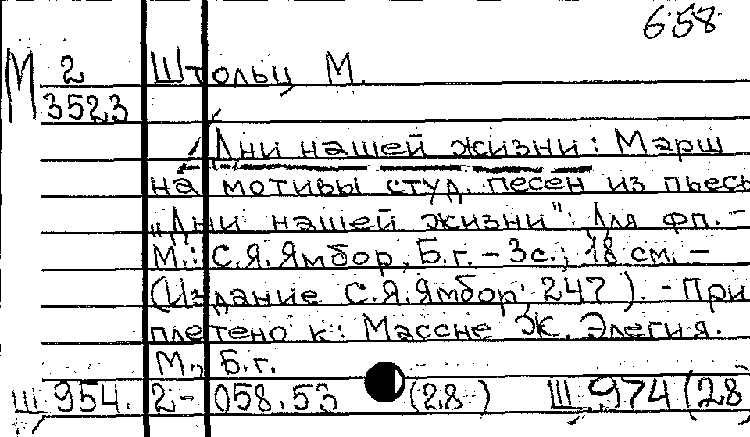 658
М 2 Штольц М.
3523
Дни нашей жизни : Марш
на мотивы студ. песен из пьесы
„Дни нашей жизни": Для фп. -
М.: С.Я. Ямбор, Б.г. - 3с.; 18 см. -
(Издание С.Я. Ямбор; 247 ). - При
плетено к: Массне Ж. Элегия.
М., Б.г.
Ш 954. 2- 058.53 (28 ) Ш 974 (28